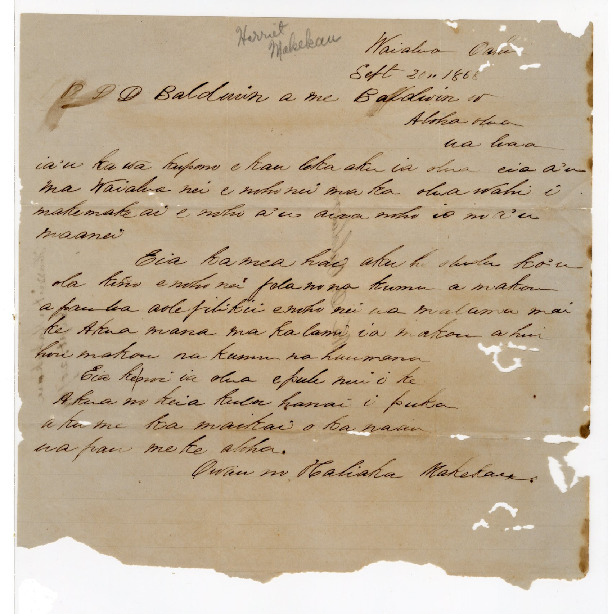 Herriet
Makekau
Waialua Oahu
Sept 20 1866
D D Baldwin a me Baldwin w
Aloha olua
ua loaa
ia'u ka wa kupono e kau leka aku ia olua eia a'u
ma Waialua nei e noho nei ma ka olua wahi i
makemake ai e noho a'u aiwa noho io no a'u
maanei
Eia ka mea hai aku ia olua ko'u
ola kino e noho nei pela no na kumu a makou
a pau loa aole pilikii e noho nei ua malama mai
ke Akua mana ma ka lani ia makou a hui
hou makou na kumu na haumana
Eia ko'oi ia olua e pule nui i ke
Akua no keia kula hanai i puka
aku me ka maikai o ka naau
ua pau me ke aloha.
Owau no Haliaka Makekau.